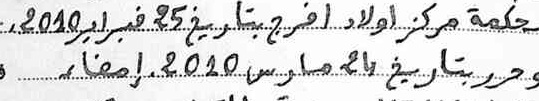 محكمة مركز اولاد افرج بتاريخ 25 فبراير 2010.
وحرر بتاريخ 24 مارس 2010. إمضاء